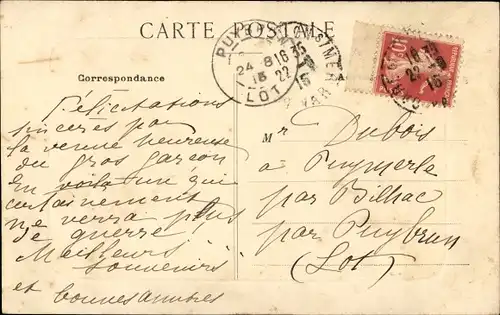 CARTE POSTALE
Correspondance
Félicitations
sincères par
la venue heureuse
du gros garçon
en voilà un qui
certainement
ne verra plus
de guerre
Meilleurs
souvenirs
et bonnes amitiés
Mr Dubois
à Puymerle
par Bilhac
par Puybrun
(Lot)
24-8 16
15
LOT
16 35
22
16
VAR
16 35
22
16
10